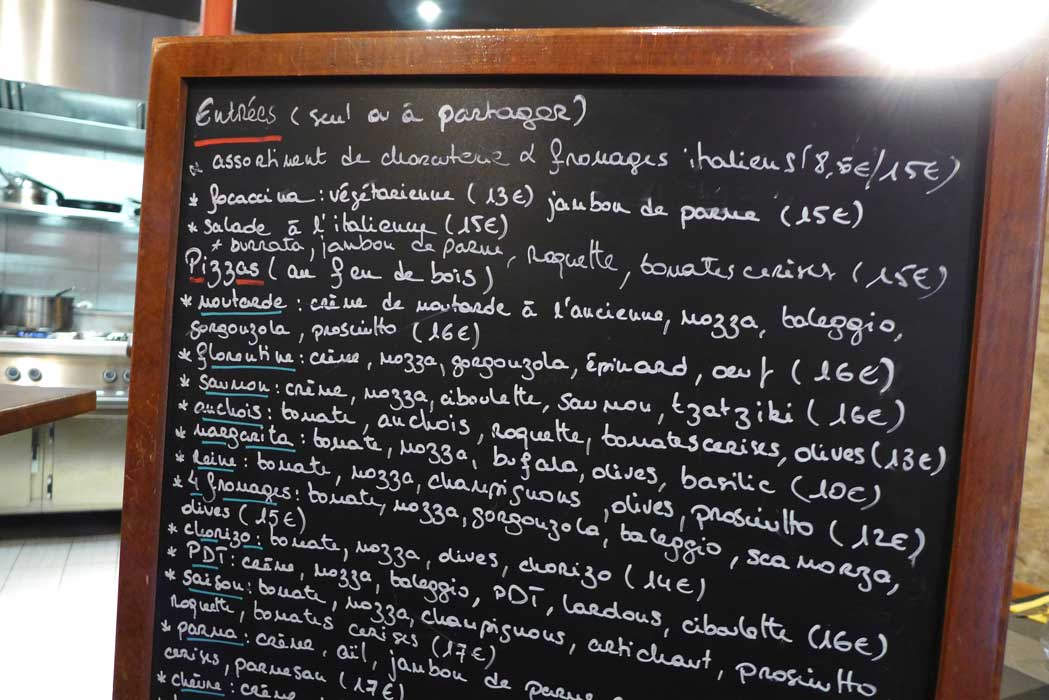 Entrées (seul ou à partager)
* assortiment de charcuterie & fromages italiens (8,5€/15€)
* focaccina : végétarienne (13€) jambon de parme (15€)
* salade à l'italienne (15€)
* burrata, jambon de parme, roquette, tomates cerises (15€)
Pizzas (au feu de bois)
* moutarde : crème de moutarde à l'ancienne, mozza, taleggio,
gorgonzola, prosciutto (16€)
* florentine : crème, mozza, gorgonzola, épinard, oeuf (16€)
* saumon : crème, mozza, ciboulette, saumon, tzatziki (16€)
* anchois : tomate, anchois, roquette, tomates cerises, olives (13€)
* margarita : tomate, mozza, bufala, olives, basilic (10€)
* Reine : tomate, mozza, champignons, olives, prosciutto (12€)
* 4 fromages : tomate, mozza, gorgonzola, taleggio, scamorza,
olives (15€)
* chorizo : tomate, mozza, olives, chorizo (14€)
* PDT : crème, mozza, taleggio, PDT, lardons, ciboulette (16€)
* saison : tomate, mozza, champignons, artichaut, prosciutto
roquette, tomates cerises (17€)
* parma : crème, aïl, jambon de parme
cerises, parmesan (17€)
* chèvre : crème